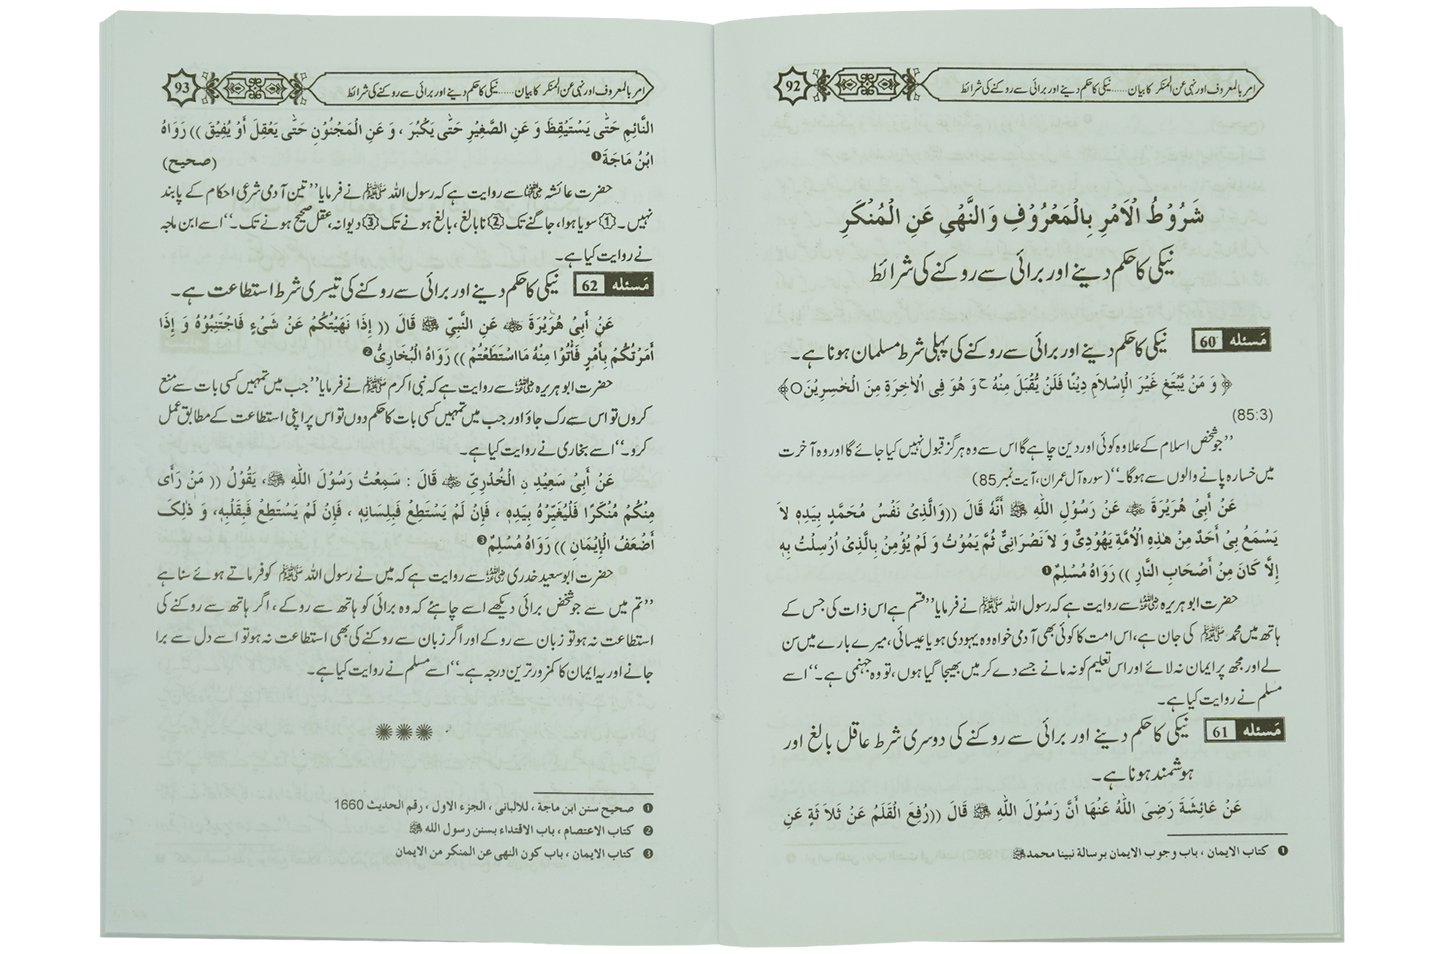 امر بالمعروف اور نہی عن المنکر کا بیان......نیکی کا حکم دینے اور برائی سے روکنے کی شرائط 92
شُرُوْطُ الْاَمْرِ بِالْمَعْرُوْفِ وَالنَّهْیِ عَنِ الْمُنْكَرِ
نیکی کا حکم دینے اور برائی سے روکنے کی شرائط
مسئله 60 نیکی کا حکم دینے اور برائی سے روکنے کی پہلی شرط مسلمان ہونا ہے۔
﴿ وَ مَنْ يَّبْتَغِ غَيْرَ الْاِسْلَامِ دِيْنًا فَلَنْ يُّقْبَلَ مِنْهُ ج وَ هُوَ فِی الْاٰخِرَةِ مِنَ الْخٰسِرِيْنَ○ ﴾
(85:3)
’’جو شخص اسلام کے علاوہ کوئی اور دین چاہے گا اس سے وہ ہرگز قبول نہیں کیا جائے گا اور وہ آخرت
میں خسارہ پانے والوں سے ہوگا۔‘‘ (سورہ آل عمران، آیت نمبر 85)
عَنْ أَبِیْ هُرَيْرَةَ ؓ عَنْ رَسُوْلِ اللّٰهِ ﷺ أَنَّهُ قَالَ ((وَالَّذِیْ نَفْسُ مُحَمَّدٍ بِيَدِهِ لاَ
يَسْمَعُ بِیْ أَحَدٌ مِنْ هٰذِهِ الْاُمَّةِ يَهُوْدِیٌّ وَ لاَ نَصْرَانِیٌّ ثُمَّ يَمُوْتُ وَ لَمْ يُؤْمِنْ بِالَّذِیْ اُرْسِلْتُ بِهِ
اِلَّا كَانَ مِنْ أَصْحَابِ النَّارِ )) رَوَاهُ مُسْلِمٌ ❶
حضرت ابو ہریرہ ؓ سے روایت ہے کہ رسول اللہ ﷺ نے فرمایا ’’قسم ہے اس ذات کی جس کے
ہاتھ میں محمد ﷺ کی جان ہے، اس امت کا کوئی بھی آدمی خواہ وہ یہودی ہو یا عیسائی، میرے بارے میں سن
لے اور مجھ پر ایمان نہ لائے اور اس تعلیم کو نہ مانے جسے دے کر میں بھیجا گیا ہوں، تو وہ جہنمی ہے۔‘‘ اسے
مسلم نے روایت کیا ہے۔
مسئله 61 نیکی کا حکم دینے اور برائی سے روکنے کی دوسری شرط عاقل بالغ اور
ہوشمند ہونا ہے۔
عَنْ عَائِشَةَ رَضِیَ اللّٰهُ عَنْهَا أَنَّ رَسُوْلَ اللّٰهِ ﷺ قَالَ ((رُفِعَ الْقَلَمُ عَنْ ثَلاَ ثَةٍ عَنِ
❶ كتاب الايمان ، باب وجوب الايمان برسالة نبينا محمد ﷺ
امر بالمعروف اور نہی عن المنکر کا بیان......نیکی کا حکم دینے اور برائی سے روکنے کی شرائط 93
النَّائِمِ حَتّٰى يَسْتَيْقِظَ وَ عَنِ الصَّغِيْرِ حَتّٰى يَكْبُرَ ، وَ عَنِ الْمَجْنُوْنِ حَتّٰى يَعْقِلَ أَوْ يُفِيْقَ )) رَوَاهُ
ابْنُ مَاجَةَ ❶ (صحيح)
حضرت عائشہ ؓ سے روایت ہے کہ رسول اللہ ﷺ نے فرمایا ’’تین آدمی شرعی احکام کے پابند
نہیں۔ ① سویا ہوا، جاگنے تک ② نابالغ، بالغ ہونے تک ③ دیوانہ، عقل صحیح ہونے تک۔‘‘ اسے ابن ماجہ
نے روایت کیا ہے۔
مسئله 62 نیکی کا حکم دینے اور برائی سے روکنے کی تیسری شرط استطاعت ہے۔
عَنْ أَبِیْ هُرَيْرَةَ ؓ عَنِ النَّبِیِّ ﷺ قَالَ (( إِذَا نَهَيْتُكُمْ عَنْ شَیْءٍ فَاجْتَنِبُوْهُ وَ إِذَا
أَمَرْتُكُمْ بِأَمْرٍ فَأْتُوْا مِنْهُ مَااسْتَطَعْتُمْ )) رَوَاهُ الْبُخَارِیُّ ❷
حضرت ابو ہریرہ ؓ سے روایت ہے کہ نبی اکرم ﷺ نے فرمایا ’’جب میں تمہیں کسی بات سے منع
کروں تو اس سے رک جاؤ اور جب میں تمہیں کسی بات کا حکم دوں تو اس پر اپنی استطاعت کے مطابق عمل
کرو۔‘‘ اسے بخاری نے روایت کیا ہے۔
عَنْ أَبِیْ سَعِيْدِ نِ الْخُدْرِیِّ ؓ قَالَ : سَمِعْتُ رَسُوْلَ اللّٰهِ ﷺ، يَقُوْلُ (( مَنْ رَأَى
مِنْكُمْ مُنْكَرًا فَلْيُغَيِّرْهُ بِيَدِهِ ، فَإِنْ لَمْ يَسْتَطِعْ فَبِلِسَانِهِ ، فَإِنْ لَمْ يَسْتَطِعْ فَبِقَلْبِهِ، وَ ذٰلِكَ
أَضْعَفُ الْإِيْمَانِ )) رَوَاهُ مُسْلِمٌ ❸
حضرت ابوسعید خدری ؓ سے روایت ہے کہ میں نے رسول اللہ ﷺ کو فرماتے ہوئے سنا ہے
’’تم میں سے جو شخص برائی دیکھے اسے چاہئے کہ وہ برائی کو ہاتھ سے روکے، اگر ہاتھ سے روکنے کی
استطاعت نہ ہو تو زبان سے روکے اور اگر زبان سے روکنے کی بھی استطاعت نہ ہو تو اسے دل سے برا
جانے اور یہ ایمان کا کمزور ترین درجہ ہے۔‘‘ اسے مسلم نے روایت کیا ہے۔
❶ صحيح سنن ابن ماجة ، للالبانی ، الجزء الاول ، رقم الحديث 1660
❷ كتاب الاعتصام ، باب الاقتداء بسنن رسول الله ﷺ
❸ كتاب الايمان ، باب كون النهى عن المنكر من الايمان